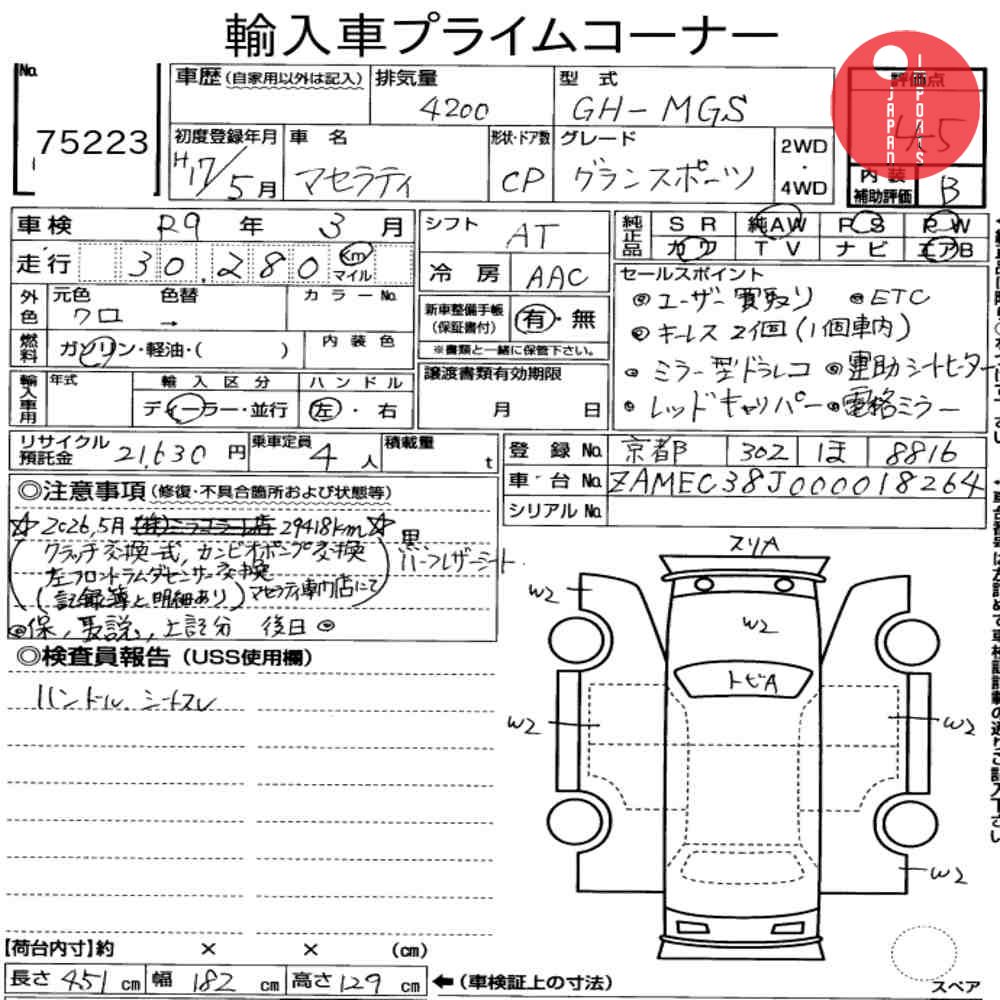 輸入車プライムコーナー
No. 75223
車歴 (自家用以外は記入)
排気量 4200
型式 GH-MGS
評価点 4.5
JAPAN IMPORTS
初度登録年月 H17/5月
車名 マセラティ
形状・ドア数 CP
グレード グランスポーツ
2WD・4WD
内装補助評価 B
車検 R9年 3月
走行 30.280 Km マイル
シフト AT
冷房 AAC
純正品 SR 純AW PS PW
カワ TV ナビ エアB
外色 元色 クロ 色替 → カラーNo.
燃料 ガソリン・軽油・( ) 内装色
新車整備手帳(保証書付) 有・無
※書類と一緒に保管下さい。
セールスポイント
◎ユーザー買取り ◎ETC
◎キーレス2個(1個車内)
◎ミラー型ドラレコ ◎電動シートヒーター
◎レッドキャリパー ◎電格ミラー
輸入車用 年式 輸入区分 ディーラー・並行 ハンドル 左・右
譲渡書類有効期限 月 日
リサイクル預託金 21,630円
乗車定員 4人
積載量 t
登録No. 京都 302 ほ 8816
車台No. ZAMEC38J000018264
シリアルNo.
◎注意事項 (修復・不具合箇所および状態等)
☆2026,5月 29418Km☆
クラッチ交換一式, カンビオポンプ交換
左フロントラムダセンサー交換
(記録簿と明細あり) マセラティ専門店にて
黒
ハーフレザーシート
◎保, 取説, 上記分 後日◎
◎検査員報告 (USS使用欄)
ハンドル. シートスレ
スリA
W2
W2
トビA
W2
W2
W2
【荷台内寸】約 × × (cm)
長さ 451 cm 幅 182 cm 高さ 129 cm ←(車検証上の寸法)
スペア